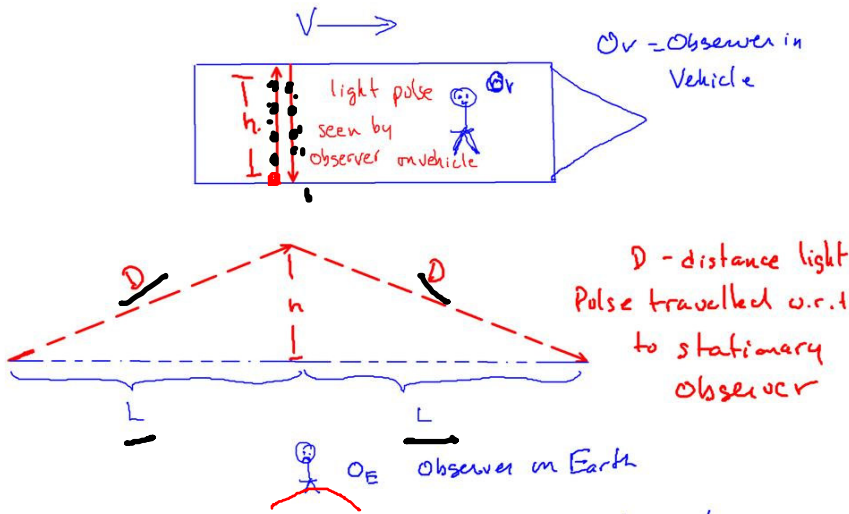 V
Ov = Observer in
Vehicle
light pulse
Ov
h.
seen by
observer on vehicle
D
D
h
D - distance light
Pulse travelled w.r.t
to stationary
observer
L
L
OE Observer on Earth